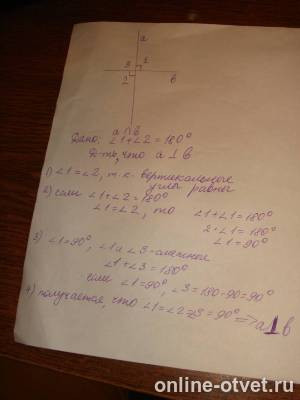 a
3 1
2 b
a ∩ b
Дано: ∠1+∠2=180°
Д-ть, что a ⊥ b
1) ∠1=∠2, т.к. вертикальные
углы равны
2) если ∠1+∠2=180°
∠1=∠2, то ∠1+∠1=180°
2·∠1=180°
∠1=90°
3) ∠1=90°, ∠1 и ∠3-смежные
∠1+∠3=180°
если ∠1=90°, ∠3=180-90=90°
4) получается, что ∠1=∠2=∠3=90° ⇒ a⊥b
online-otvet.ru